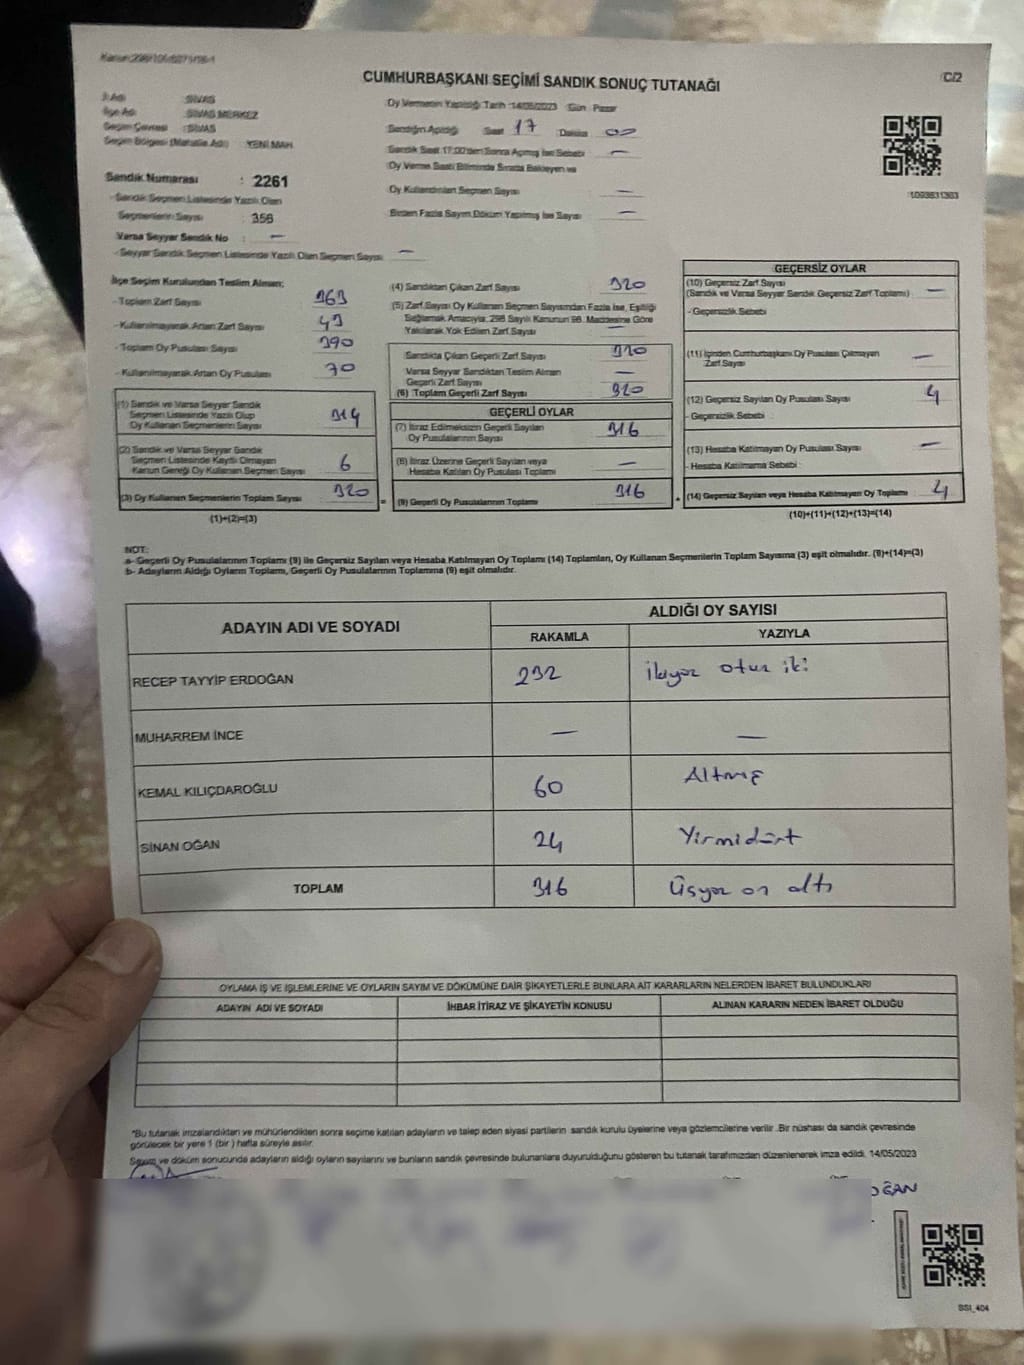 Kanun:298/105:6271/16-1
CUMHURBAŞKANI SEÇİMİ SANDIK SONUÇ TUTANAĞI
C/2
İl Adı : SİVAS
İlçe Adı : SİVAS MERKEZ
Seçim Çevresi : SİVAS
Seçim Bölgesi (Mahalle Adı) : YENİ MAH
Sandık Numarası : 2261
- Sandık Seçmen Listesinde Yazılı Olan
Seçmenlerin Sayısı : 356
Varsa Seyyar Sandık No : —
- Seyyar Sandık Seçmen Listesinde Yazılı Olan Seçmen Sayısı —
Oy Vermenin Yapıldığı Tarih :14/05/2023 Gün Pazar
Sandığın Açıldığı Saat 17 Dakika 00
Sandık Saat 17:00'den Sonra Açılmış İse Sebebi —
Oy Verme Saati Bitiminde Sırada Bekleyen ve
Oy Kullandırılan Seçmen Sayısı —
Birden Fazla Sayım Döküm Yapılmış İse Sayısı —
1093631363
İlçe Seçim Kurulundan Teslim Alınan;
- Toplam Zarf Sayısı 363
- Kullanılmayarak Artan Zarf Sayısı 43
- Toplam Oy Pusulası Sayısı 390
- Kullanılmayarak Artan Oy Pusulası 70
(1) Sandık ve Varsa Seyyar Sandık
Seçmen Listesinde Yazılı Olup
Oy Kullanan Seçmenlerin Sayısı 314
(2) Sandık ve Varsa Seyyar Sandık
Seçmen Listesinde Kayıtlı Olmayan
Kanun Gereği Oy Kullanan Seçmen Sayısı 6
(3) Oy Kullanan Seçmenlerin Toplam Sayısı 320
(1)+(2)=(3)
(4) Sandıktan Çıkan Zarf Sayısı 320
(5) Zarf Sayısı Oy Kullanan Seçmen Sayısından Fazla İse, Eşitliği
Sağlamak Amacıyla; 298 Sayılı Kanunun 98. Maddesine Göre
Yakılarak Yok Edilen Zarf Sayısı —
Sandıkta Çıkan Geçerli Zarf Sayısı 320
Varsa Seyyar Sandıktan Teslim Alınan
Geçerli Zarf Sayısı —
(6) Toplam Geçerli Zarf Sayısı 320
GEÇERLİ OYLAR
(7) İtiraz Edilmeksizin Geçerli Sayılan
Oy Pusulalarının Sayısı 316
(8) İtiraz Üzerine Geçerli Sayılan veya
Hesaba Katılan Oy Pusulası Toplamı —
(9) Geçerli Oy Pusulalarının Toplamı 316
GEÇERSİZ OYLAR
(10) Geçersiz Zarf Sayısı
(Sandık ve Varsa Seyyar Sandık Geçersiz Zarf Toplamı) —
- Geçersizlik Sebebi
(11) İçinden Cumhurbaşkanı Oy Pusulası Çıkmayan
Zarf Sayısı —
(12) Geçersiz Sayılan Oy Pusulası Sayısı 4
- Geçersizlik Sebebi
(13) Hesaba Katılmayan Oy Pusulası Sayısı —
- Hesaba Katılmama Sebebi
(14) Geçersiz Sayılan veya Hesaba Katılmayan Oy Toplamı 4
(10)+(11)+(12)+(13)=(14)
NOT:
a- Geçerli Oy Pusulalarının Toplamı (9) ile Geçersiz Sayılan veya Hesaba Katılmayan Oy Toplamı (14) Toplamları, Oy Kullanan Seçmenlerin Toplam Sayısına (3) eşit olmalıdır. (9)+(14)=(3)
b- Adayların Aldığı Oyların Toplamı, Geçerli Oy Pusulalarının Toplamına (9) eşit olmalıdır.
ADAYIN ADI VE SOYADI ALDIĞI OY SAYISI
RAKAMLA YAZIYLA
RECEP TAYYİP ERDOĞAN 232 ikiyüz otuz iki
MUHARREM İNCE — —
KEMAL KILIÇDAROĞLU 60 Altmış
SİNAN OĞAN 24 Yirmidört
TOPLAM 316 Üçyüz on altı
OYLAMA İŞ VE İŞLEMLERİNE VE OYLARIN SAYIM VE DÖKÜMÜNE DAİR ŞİKAYETLERLE BUNLARA AİT KARARLARIN NELERDEN İBARET BULUNDUKLARI
ADAYIN ADI VE SOYADI İHBAR İTİRAZ VE ŞİKAYETİN KONUSU ALINAN KARARIN NEDEN İBARET OLDUĞU
*Bu tutanak imzalandıktan ve mühürlendikten sonra seçime katılan adayların ve talep eden siyasi partilerin sandık kurulu üyelerine veya gözlemcilerine verilir. Bir nüshası da sandık çevresinde
görülecek bir yere 1 (bir) hafta süreyle asılır.
Sayım ve döküm sonucunda adayların aldığı oyların sayılarını ve bunların sandık çevresinde bulunanlara duyurulduğunu gösteren bu tutanak tarafımızdan düzenlenerek imza edildi. 14/05/2023
SSI_404